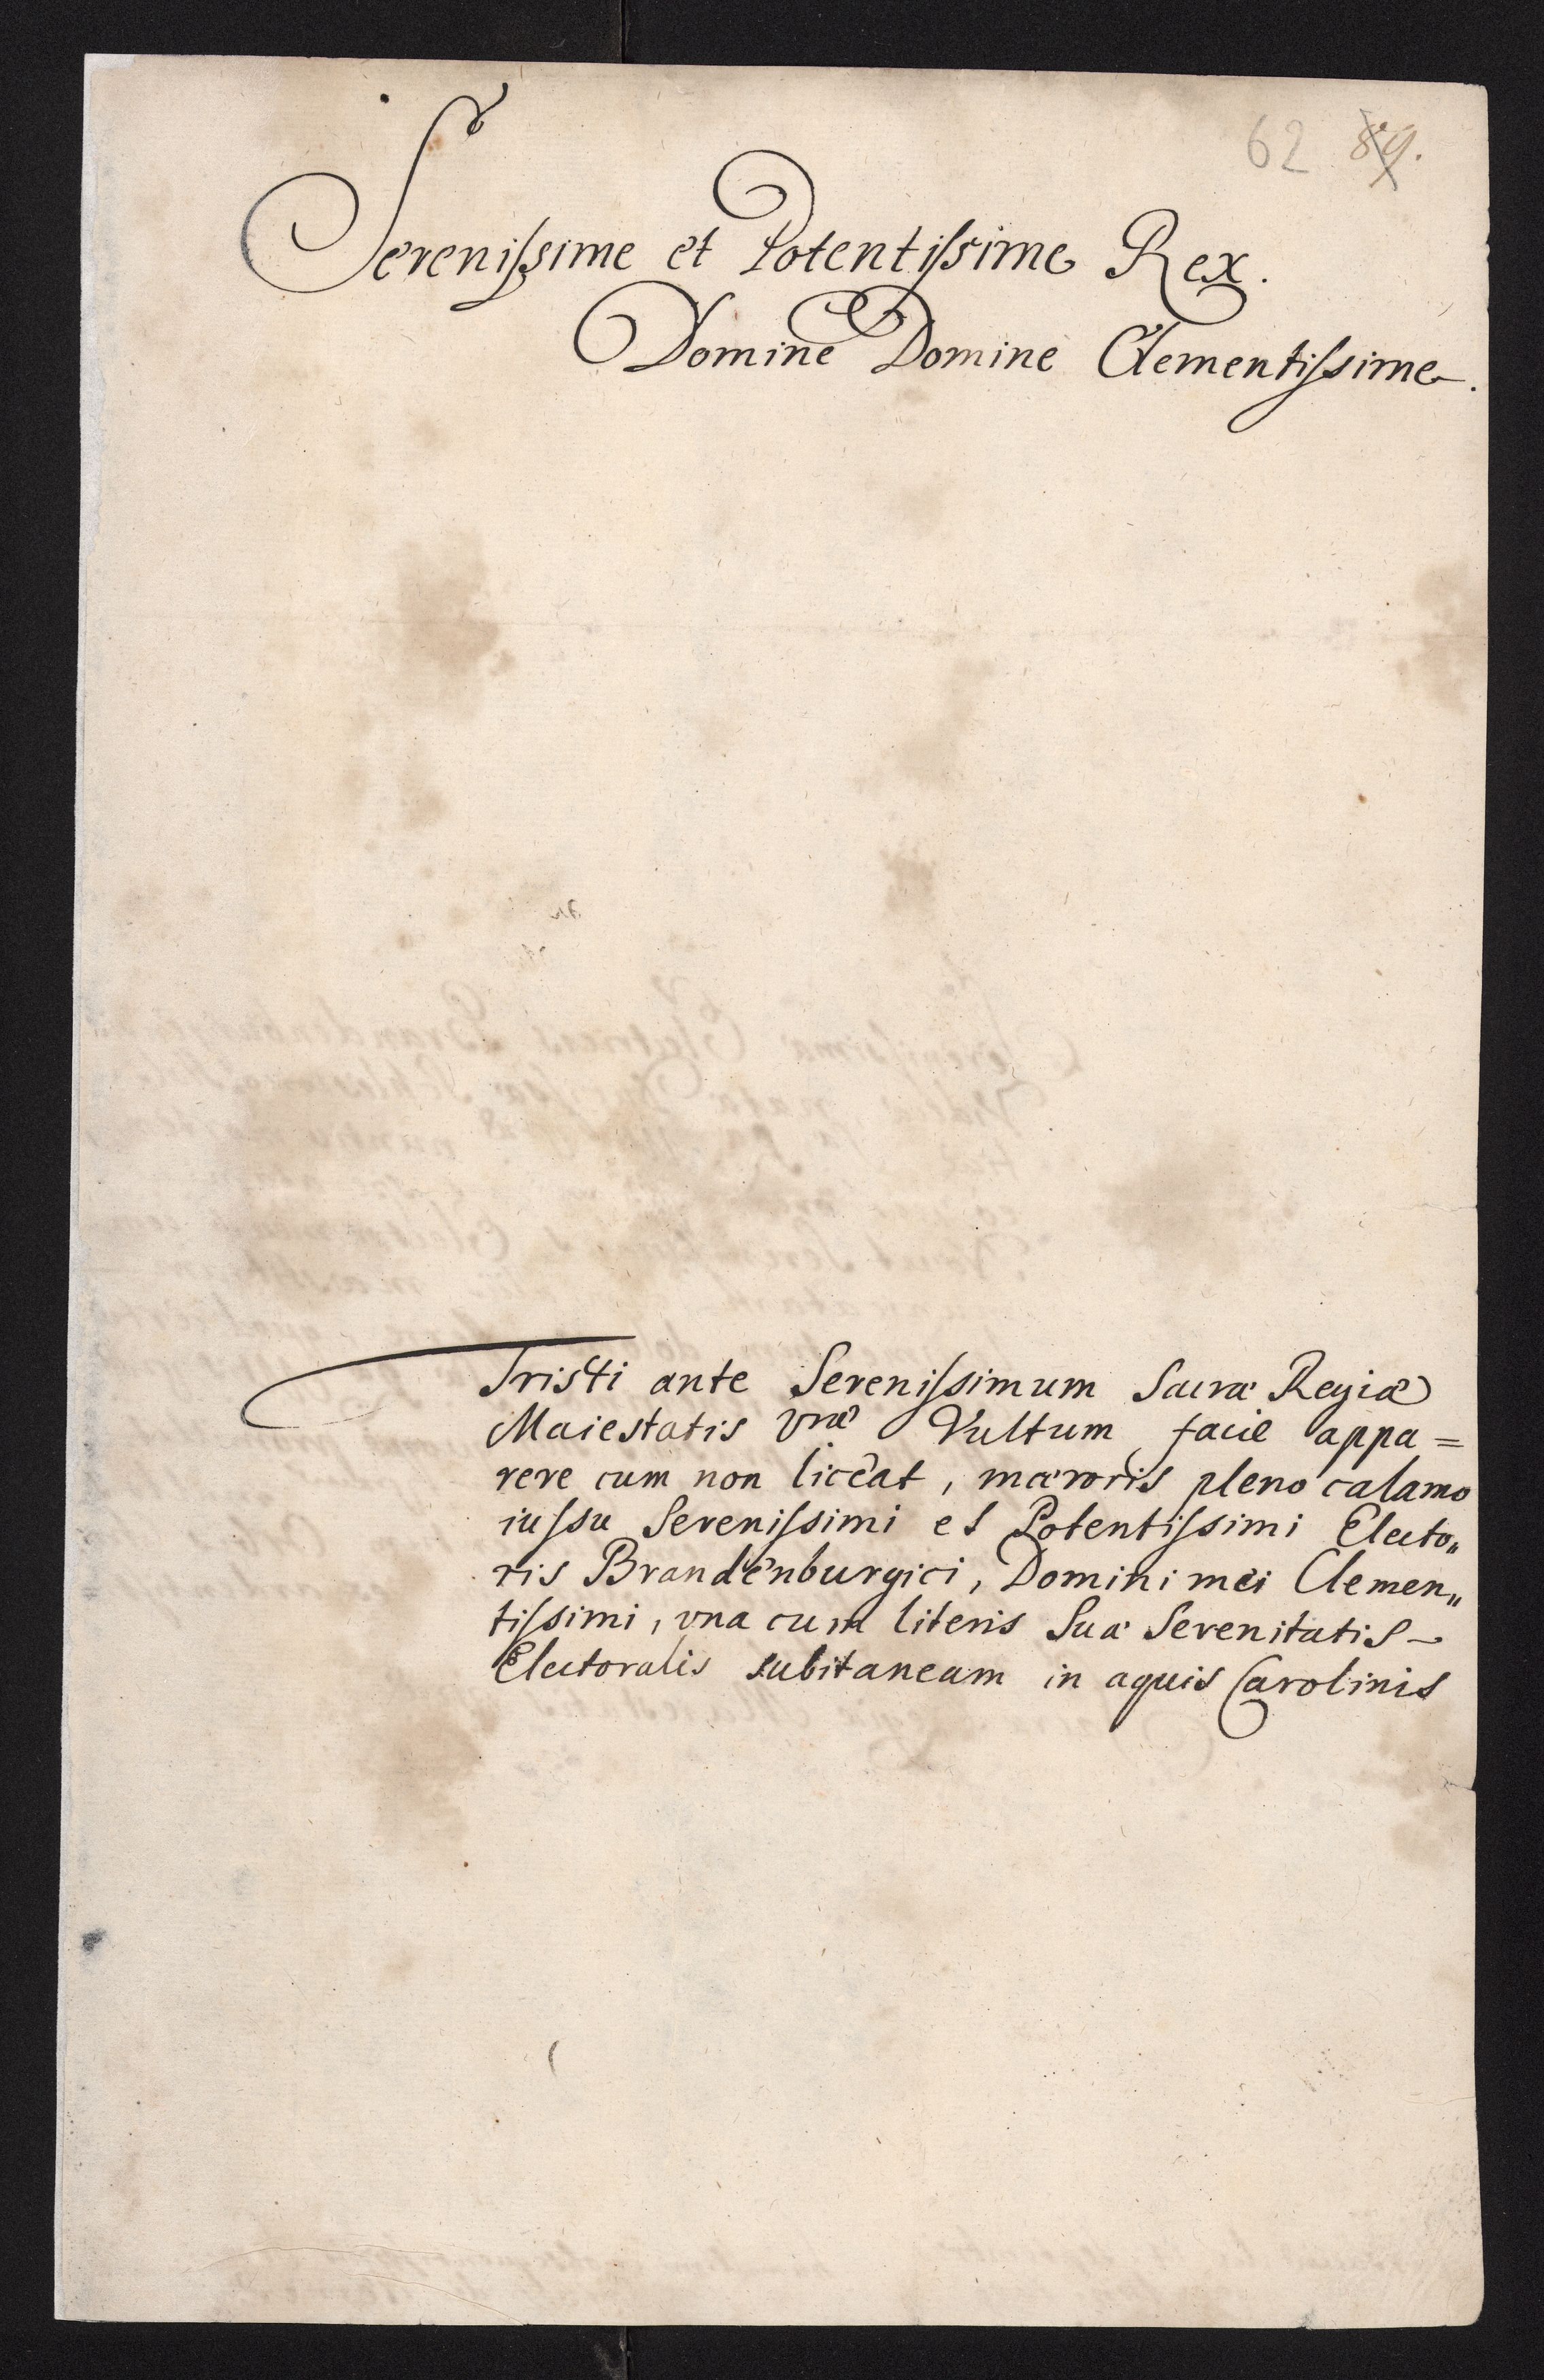 62 89.
Serenissime et Potentissime Rex.
Domine Domine Clementissime.
Tristi ante Serenissimum Sacræ Regiæ
Maiestatis Vræ Vultum facie appa=
rere cum non liceat, mœroris pleno calamo
iussu Serenissimi et Potentissimi Electo„
ris Brandenburgici, Domini mei Clemen„
tissimi, vna cum literis Suæ Serenitatis
Electoralis subitaneam in aquis Carolinis